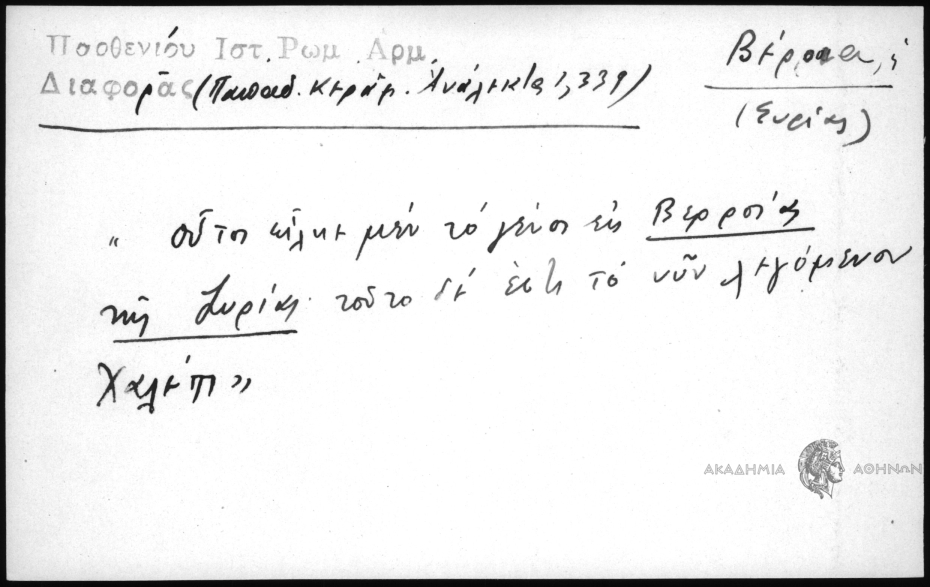 Παρθενίου Ιστ. Ρωμ Αρμ.
Διαφορᾶς (Παπαδ. Κεράμ. Ἀνάλεκτα 1, 339)
Βέρροια, ἡ
(Συρίας)
" οὗτοι εἷλκε μέν τό γένος ἐκ Βερροίας
τῆς Συρίας τοῦτο δέ ἐστι τό νῦν λεγόμενον
Χαλέπι"
ΑΚΑΔΗΜΙΑ ΑΘΗΝΩΝ